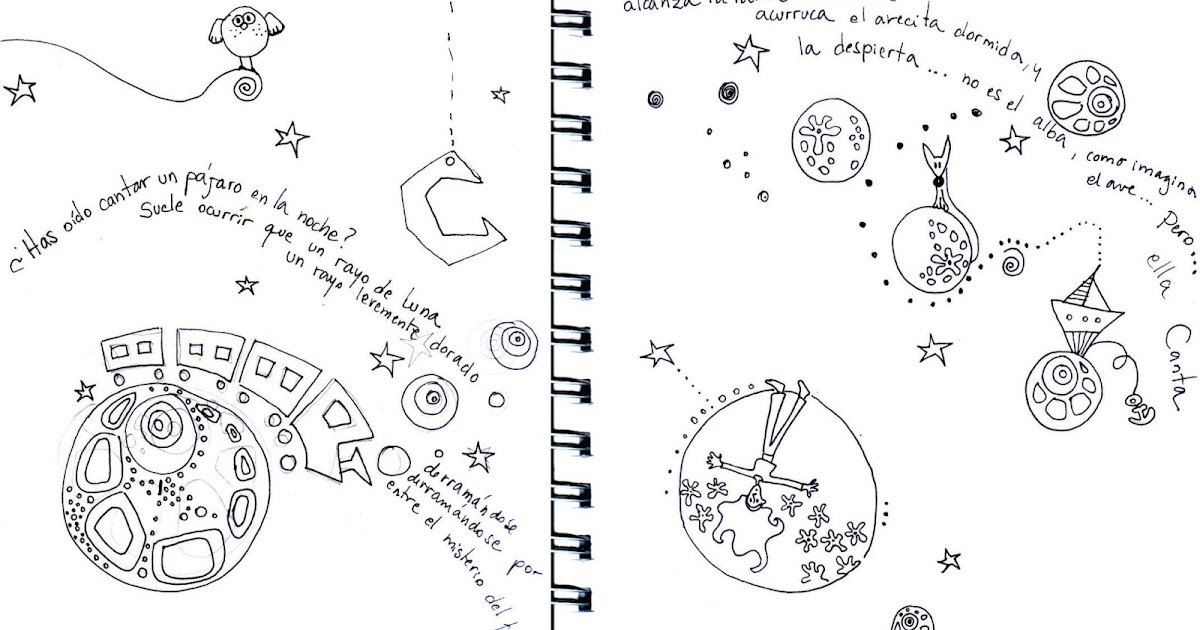 ¿Has oído cantar un pájaro en la noche?
Suele ocurrir que un rayo de luna
un rayo levemente dorado
derramándose
dirramándose por
entre el misterio del
alcanza la
acurruca el avecita dormida, y
la despierta... no es el
alba, como imagina
el ave... Pero
ella
Canta